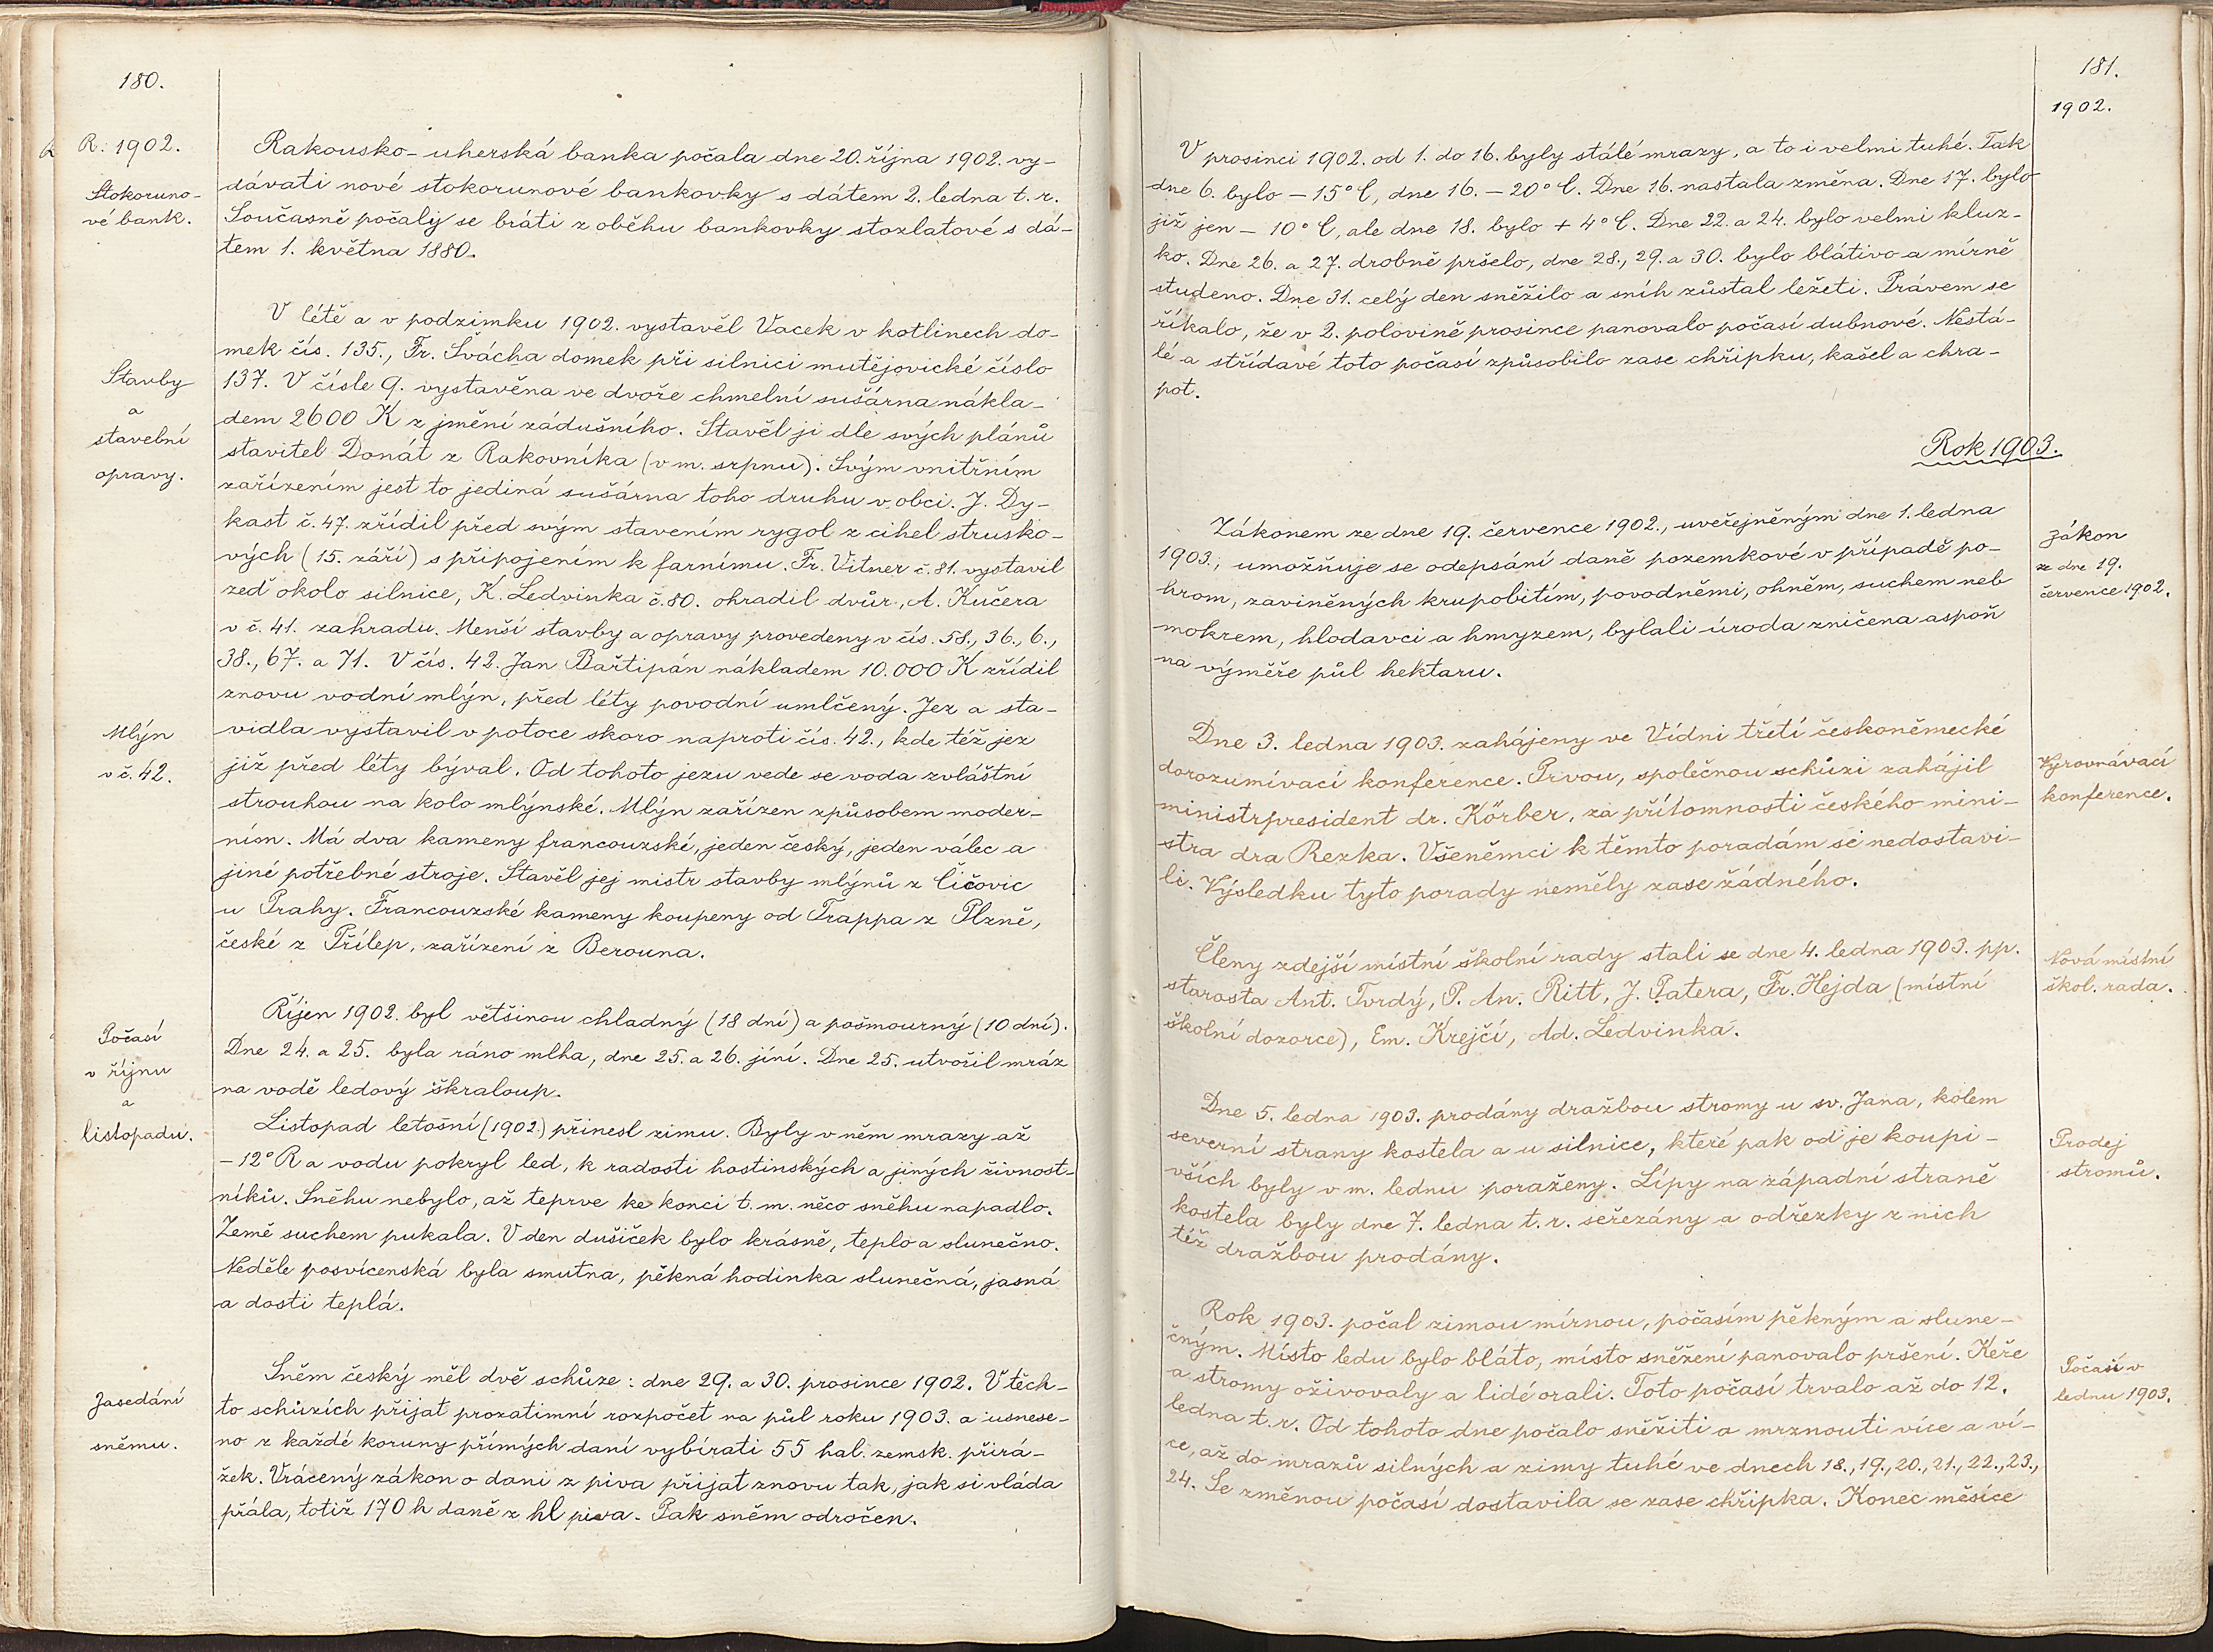 180.
R. 1902.
Stokoruno-
vé bank.
Rakousko-uherská banka počala dne 20. října 1902. vy-
dávati nové stokorunové bankovky s dátem 2. ledna t. r.
Současně počaly se bráti z oběhu bankovky stozlatové s dá-
tem 1. května 1880.
Stavby
a
stavební
opravy.
V létě a v podzimku 1902. vystavěl Vacek v kotlinech do-
mek čís. 135., Fr. Švácha domek při silnici mutějovické číslo
137. V čísle 9. vystavěna ve dvoře chmelní sušárna nákla-
dem 2600 K z jmění zádušního. Stavěl ji dle svých plánů
stavitel Donát z Rakovníka (v m. srpnu). Svým vnitřním
zařízením jest to jediná sušárna toho druhu v obci. J. Dy-
kast č. 47. zřídil před svým stavením rygol z cihel strusko-
vých (15. září) s připojením k farnímu. Fr. Vitner č. 81. vystavil
zeď okolo silnice, K. Ledvinka č. 80. ohradil dvůr, A. Kučera
v č. 41. zahradu. Menší stavby a opravy provedeny v čís. 58., 36., 6.,
38., 67. a 71. V čís. 42. Jan Bařtipán nákladem 10.000 K zřídil
znovu vodní mlýn, před léty povodní umlčený. Jez a sta-
Mlýn
v č. 42.
vidla vystavil v potoce skoro naproti čís. 42., kde též jez
již před léty býval. Od tohoto jezu vede se voda zvláštní
strouhou na kolo mlýnské. Mlýn zařízen způsobem moder-
ním. Má dva kameny francouzské, jeden český, jeden válec a
jiné potřebné stroje. Stavěl jej mistr stavby mlýnů z Čičovic
u Prahy. Francouzské kameny koupeny od Trappa z Plzně,
české z Přílep, zařízení z Berouna.
Počasí
v říjnu
a
listopadu.
Říjen 1902. byl většinou chladný (18 dní) a pošmourný (10 dní).
Dne 24. a 25. byla ráno mlha, dne 25. a 26. jíní. Dne 25. utvořil mráz
na vodě ledový škraloup.
Listopad letošní (1902.) přinesl zimu. Byly v něm mrazy až
-12° R a vodu pokryl led, k radosti hostinských a jiných živnost-
níků. Sněhu nebylo, až teprve ke konci t. m. něco sněhu napadlo.
Země suchem pukala. V den dušiček bylo krásně, teplo a slunečno.
Neděle posvícenská byla smutna, pěkná hodinka slunečná, jasná
a dosti teplá.
Zasedání
sněmu.
Sněm český měl dvě schůze: dne 29. a 30. prosince 1902. V těch-
to schůzích přijat prozatimní rozpočet na půl roku 1903. a usnese-
no z každé koruny přímých daní vybírati 55 hal. zemsk. přirá-
žek. Vrácený zákon o dani z piva přijat znovu tak, jak si vláda
přála, totiž 170 h daně z hl piva. Pak sněm odročen.
181.
1902.
V prosinci 1902. od 1. do 16. byly stálé mrazy, a to i velmi tuhé. Tak
dne 6. bylo - 15° C, dne 16. - 20° C. Dne 16. nastala změna. Dne 17. bylo
již jen - 10° C, ale dne 18. bylo + 4° C. Dne 22. a 24. bylo velmi kluz-
ko. Dne 26. a 27. drobně pršelo, dne 28., 29. a 30. bylo blátivo a mírně
studeno. Dne 31. celý den sněžilo a sníh zůstal ležeti. Právem se
říkalo, že v 2. polovině prosince panovalo počasí dubnové. Nestá-
lé a střídavé toto počasí způsobilo zase chřipku, kašel a chra-
pot.
Rok 1903.
Zákonem ze dne 19. července 1902., uveřejněným dne 1. ledna
1903., umožňuje se odepsání daně pozemkové v případě po-
hrom, zaviněných krupobitím, povodněmi, ohněm, suchem neb
mokrem, hlodavci a hmyzem, bylali úroda zničena aspoň
na výměře půl hektaru.
Zákon
ze dne 19.
července 1902.
Dne 3. ledna 1903. zahájeny ve Vídni třetí českoněmecké
dorozumívací konference. Prvou, společnou schůzi zahájil
ministrpresident dr. Körber, za přítomnosti českého mini-
stra dra Rezka. Všeněmci k těmto poradám se nedostavi-
li. Výsledku tyto porady neměly zase žádného.
Vyrovnávací
konference.
Členy zdejší místní školní rady stali se dne 4. ledna 1903. pp.
starosta Ant. Tvrdý, P. An. Ritt, J. Patera, Fr. Hejda (místní
školní dozorce), Em. Krejčí, Ad. Ledvinka.
Nová místní
škol. rada.
Dne 5. ledna 1903. prodány dražbou stromy u sv. Jana, kolem
severní strany kostela a u silnice, které pak od je koupi-
vších byly v m. lednu poraženy. Lípy na západní straně
kostela byly dne 7. ledna t. r. seřezány a odřezky z nich
též dražbou prodány.
Prodej
stromů.
Rok 1903. počal zimou mírnou, počasím pěkným a slune-
čným. Místo ledu bylo bláto, místo sněžení panovalo pršení. Keře
a stromy oživovaly a lidé orali. Toto počasí trvalo až do 12.
ledna t. r. Od tohoto dne počalo sněžiti a mrznouti více a ví-
ce, až do mrazů silných a zimy tuhé ve dnech 18., 19., 20., 21., 22., 23.,
24. Se změnou počasí dostavila se zase chřipka. Konec měsíce
Počasí v
lednu 1903.